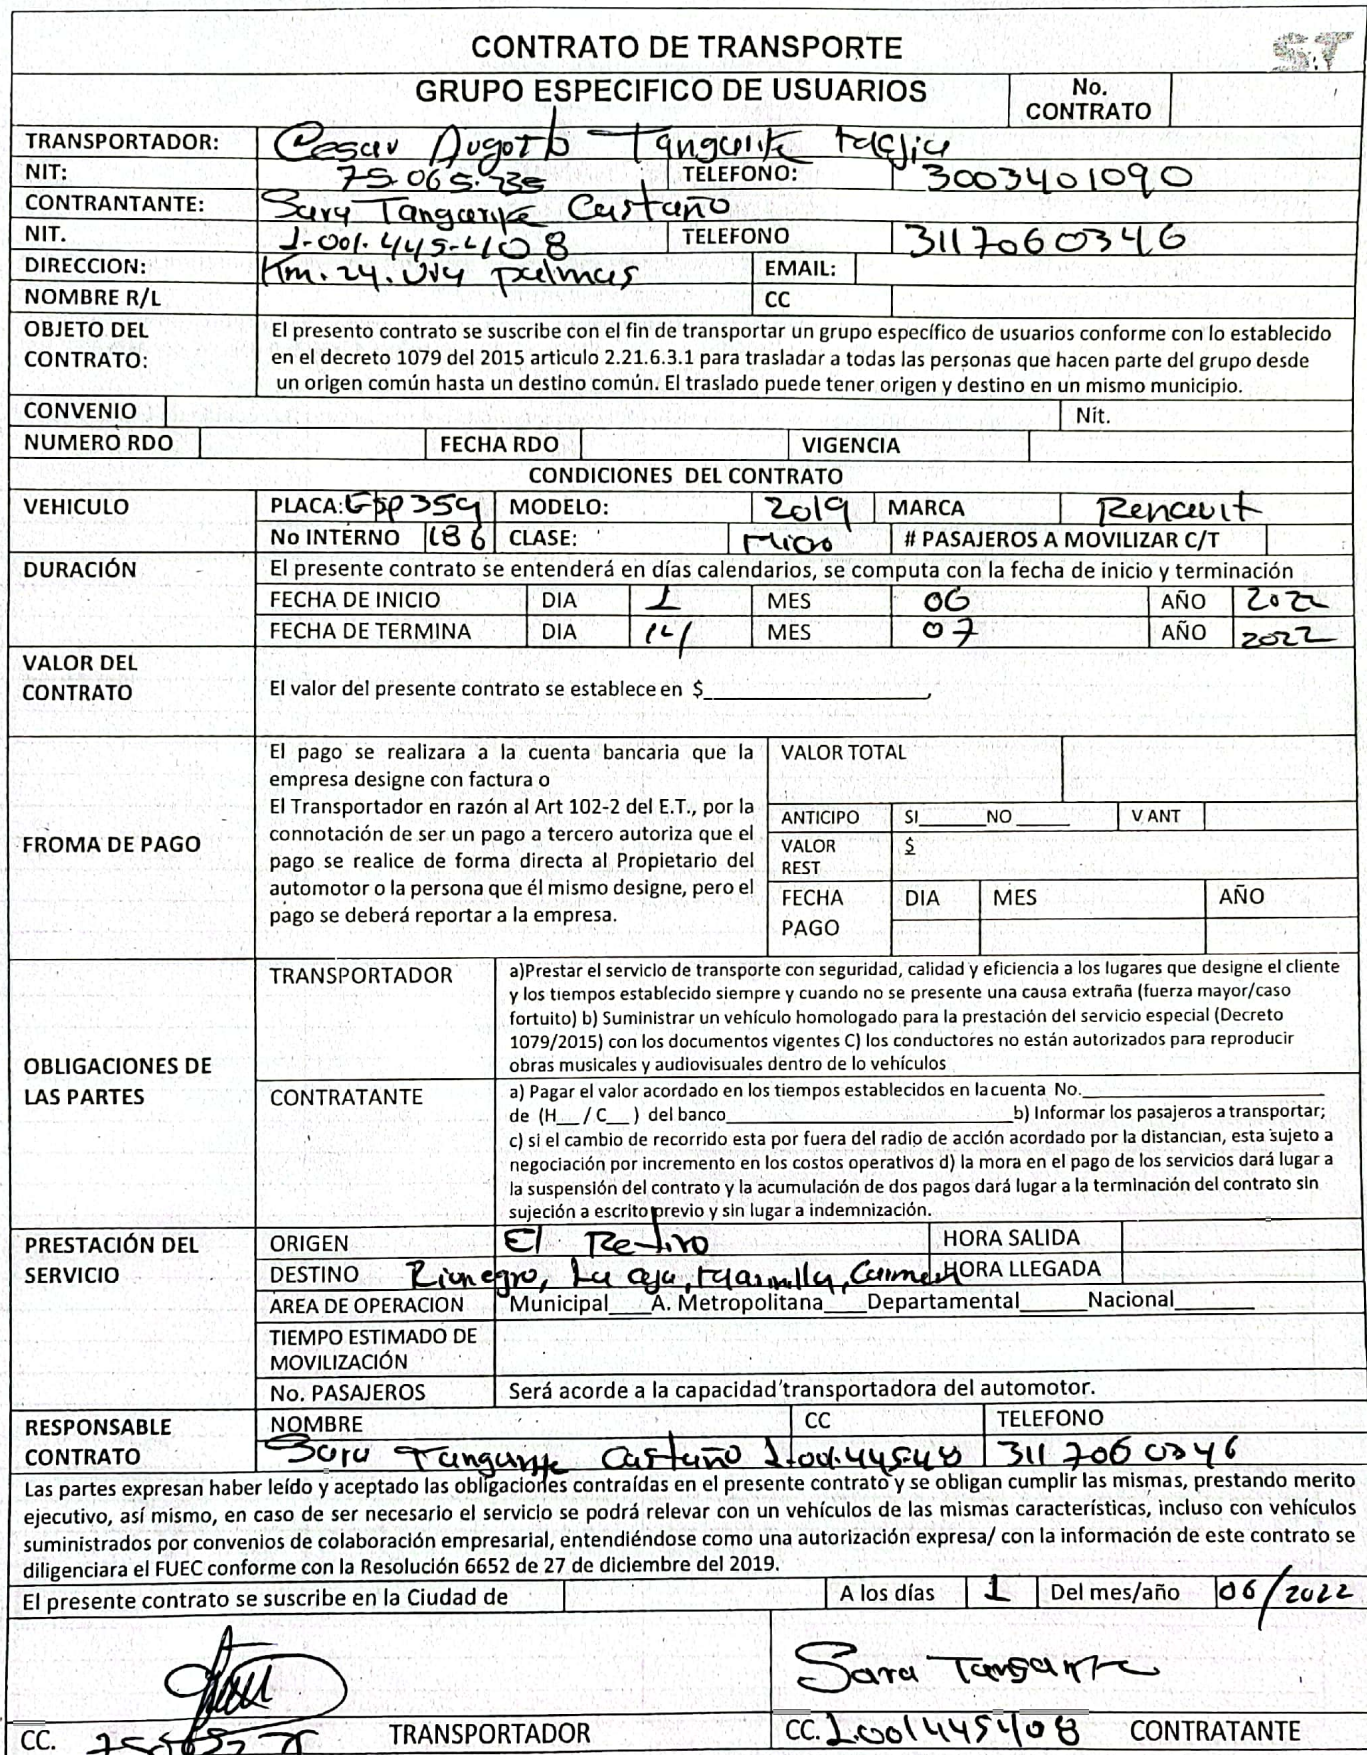 CONTRATO DE TRANSPORTE
S.T
GRUPO ESPECIFICO DE USUARIOS No. CONTRATO
TRANSPORTADOR: Cesar Augosto Tangarife
NIT: 75.065.235 TELEFONO: 3003401090
CONTRANTANTE: Sara Tangarife Castaño
NIT. 1.001.445.408 TELEFONO 3117060346
DIRECCION: Km. 24. Via palmas EMAIL:
NOMBRE R/L CC
OBJETO DEL CONTRATO: El presento contrato se suscribe con el fin de transportar un grupo específico de usuarios conforme con lo establecido
en el decreto 1079 del 2015 articulo 2.21.6.3.1 para trasladar a todas las personas que hacen parte del grupo desde
un origen común hasta un destino común. El traslado puede tener origen y destino en un mismo municipio.
CONVENIO Nit.
NUMERO RDO FECHA RDO VIGENCIA
CONDICIONES DEL CONTRATO
VEHICULO PLACA: GSP359 MODELO: 2019 MARCA Renault
No INTERNO 186 CLASE: Micro # PASAJEROS A MOVILIZAR C/T
DURACIÓN El presente contrato se entenderá en días calendarios, se computa con la fecha de inicio y terminación
FECHA DE INICIO DIA 1 MES 06 AÑO 2022
FECHA DE TERMINA DIA 14 MES 07 AÑO 2022
VALOR DEL CONTRATO El valor del presente contrato se establece en $____________________,
FROMA DE PAGO
El pago se realizara a la cuenta bancaria que la
empresa designe con factura o
El Transportador en razón al Art 102-2 del E.T., por la
connotación de ser un pago a tercero autoriza que el
pago se realice de forma directa al Propietario del
automotor o la persona que él mismo designe, pero el
pago se deberá reportar a la empresa.
VALOR TOTAL
ANTICIPO SI______NO______ V ANT
VALOR REST $
FECHA PAGO DIA MES AÑO
OBLIGACIONES DE LAS PARTES
TRANSPORTADOR a)Prestar el servicio de transporte con seguridad, calidad y eficiencia a los lugares que designe el cliente
y los tiempos establecido siempre y cuando no se presente una causa extraña (fuerza mayor/caso
fortuito) b) Suministrar un vehículo homologado para la prestación del servicio especial (Decreto
1079/2015) con los documentos vigentes C) los conductores no están autorizados para reproducir
obras musicales y audiovisuales dentro de lo vehículos
CONTRATANTE a) Pagar el valor acordado en los tiempos establecidos en la cuenta No.______________________
de (H__ / C__ ) del banco__________________________b) Informar los pasajeros a transportar;
c) si el cambio de recorrido esta por fuera del radio de acción acordado por la distancian, esta sujeto a
negociación por incremento en los costos operativos d) la mora en el pago de los servicios dará lugar a
la suspensión del contrato y la acumulación de dos pagos dará lugar a la terminación del contrato sin
sujeción a escrito previo y sin lugar a indemnización.
PRESTACIÓN DEL SERVICIO
ORIGEN El Retiro HORA SALIDA
DESTINO Rionegro, La ceja, Marinilla, Carmen HORA LLEGADA
AREA DE OPERACION Municipal___A. Metropolitana___Departamental_____Nacional_______
TIEMPO ESTIMADO DE MOVILIZACIÓN
No. PASAJEROS Será acorde a la capacidad transportadora del automotor.
RESPONSABLE CONTRATO
NOMBRE CC TELEFONO
Sara Tangarife Castaño 311 706 0346
Las partes expresan haber leído y aceptado las obligaciones contraídas en el presente contrato y se obligan cumplir las mismas, prestando merito
ejecutivo, así mismo, en caso de ser necesario el servicio se podrá relevar con un vehículos de las mismas características, incluso con vehículos
suministrados por convenios de colaboración empresarial, entendiéndose como una autorización expresa/ con la información de este contrato se
diligenciara el FUEC conforme con la Resolución 6652 de 27 de diciembre del 2019.
El presente contrato se suscribe en la Ciudad de A los días 1 Del mes/año 06/2022
Sara Tangarife
CC. TRANSPORTADOR CC. 1.001445408 CONTRATANTE